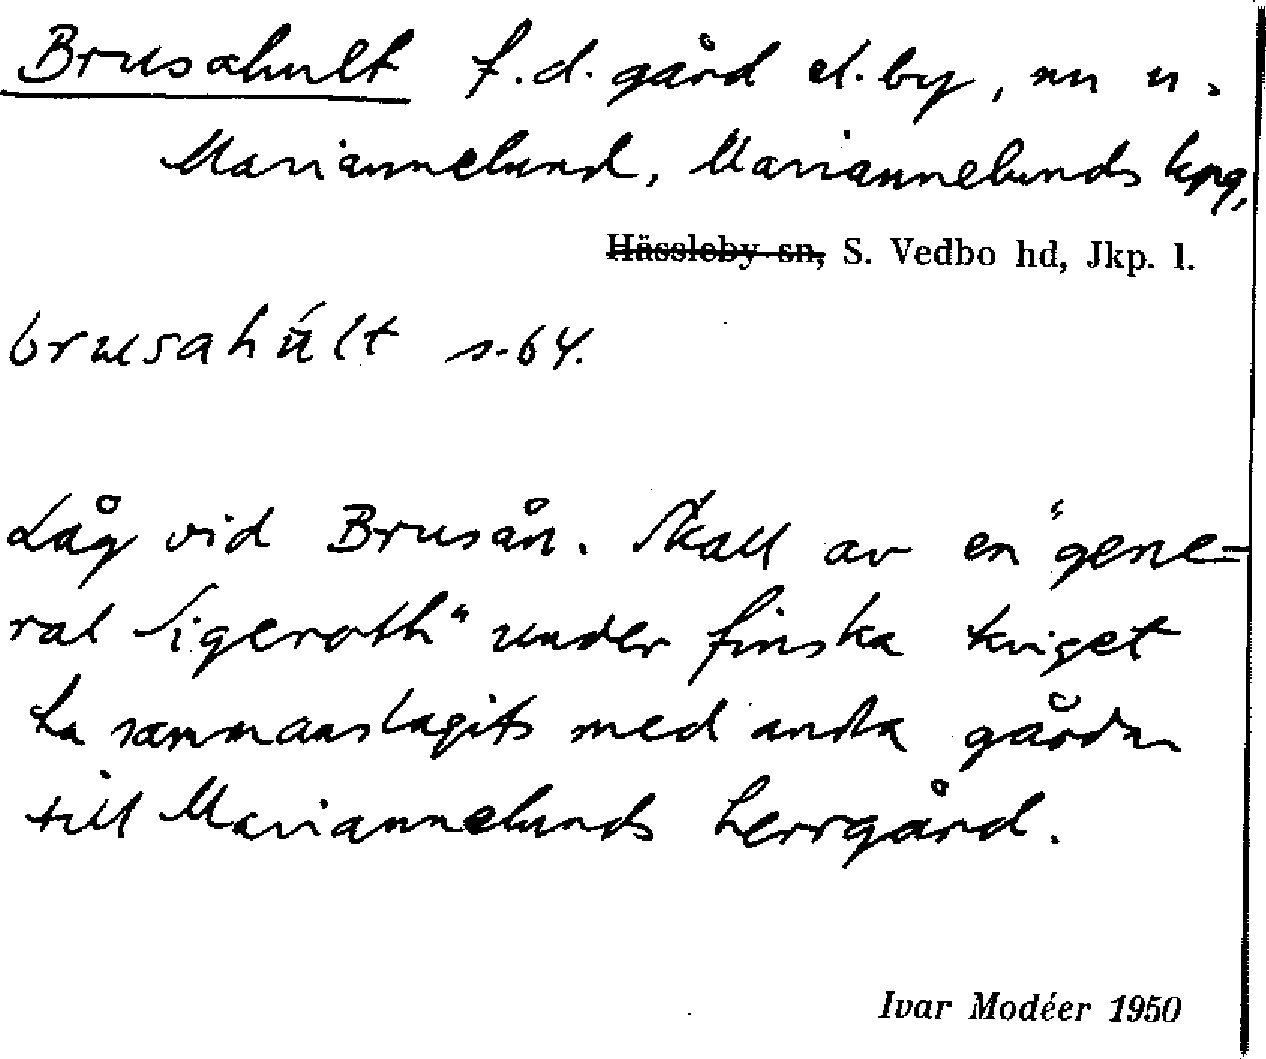 Brusahult f.d. gård el. by, nu u.
Mariannelund, Mariannelunds kpg,
Hässleby sn, S. Vedbo hd, Jkp. l.
brusahúlt s-64.
Låg vid Brusån. Skall av en "gene-
ral Sigeroth" under finska kriget
ha sammanslagits med andra gårdar
till Mariannelunds herrgård.
Ivar Modéer 1950